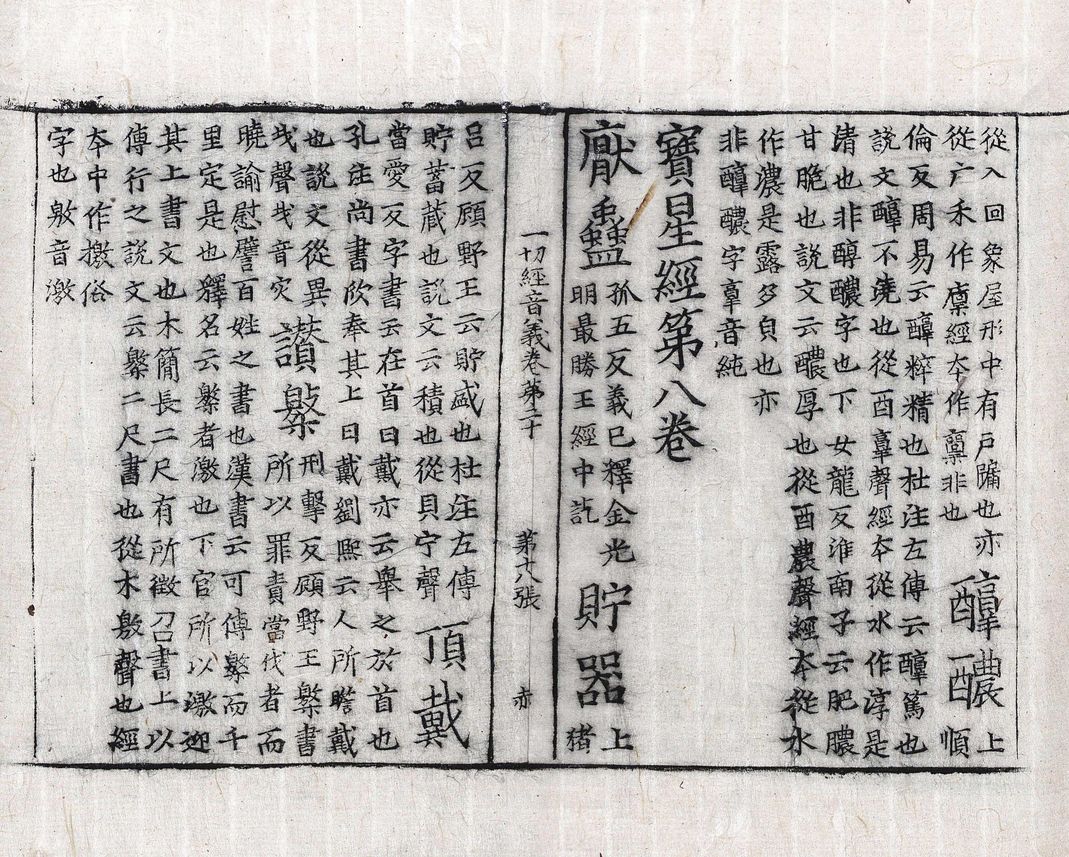 從入回象屋形中有戶牖也亦
從广禾作廩經夲作稟非也
𨣑醲
上
順
倫反周易云𨣑粹精也杜注左傳云𨣑篤也
說文𨣑不澆也從酉𦎫聲經夲從水作淳是
清也非醇醲字也下女龍反淮南子云肥膿
甘脆也說文云醲厚也從酉農聲經夲從水
作濃是露多皃也亦
非𨣑醲字𦎫音純
寶星經第八卷
厭蠱
孤五反義已釋金光
明最勝王經中訖
貯器
上
猪
一切經音義卷第二十 第十八張 赤
呂反顧野王云貯盛也杜注左傳
貯蓄蔵也説文云積也從貝宁聲
頂戴
當愛反字書云在首曰戴亦云舉之於首也
孔注尚書欣奉其上曰戴劉熙云人所瞻戴
也説文從異
𢦏聲𢦏音灾
讃檄
刑擊反顧野王檄書
所以罪責當伐者而
曉諭慰譬百姓之書也漢書云可傳檄而千
里定是也釋名云檄者激也下官所以激迎
其上書文也木簡長二尺有所徵召書上以
傳行之説文云檄二尺書也從木敫聲也經
夲中作撽俗
字也敫音激